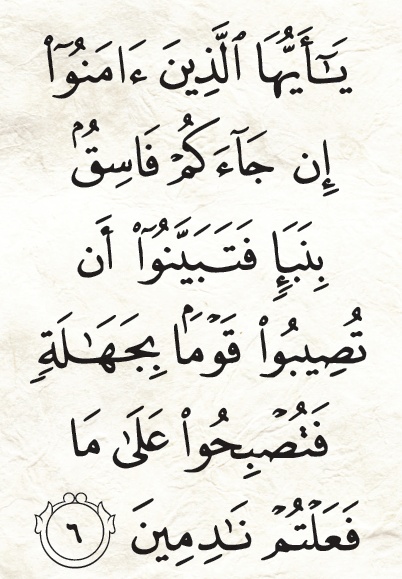 يَٰٓأَيُّهَا ٱلَّذِينَ ءَامَنُوٓا۟
إِن جَآءَكُمْ فَاسِقٌۢ
بِنَبَإٍ فَتَبَيَّنُوٓا۟ أَن
تُصِيبُوا۟ قَوْمًۢا بِجَهَٰلَةٍ
فَتُصْبِحُوا۟ عَلَىٰ مَا
فَعَلْتُمْ نَٰدِمِينَ ٦